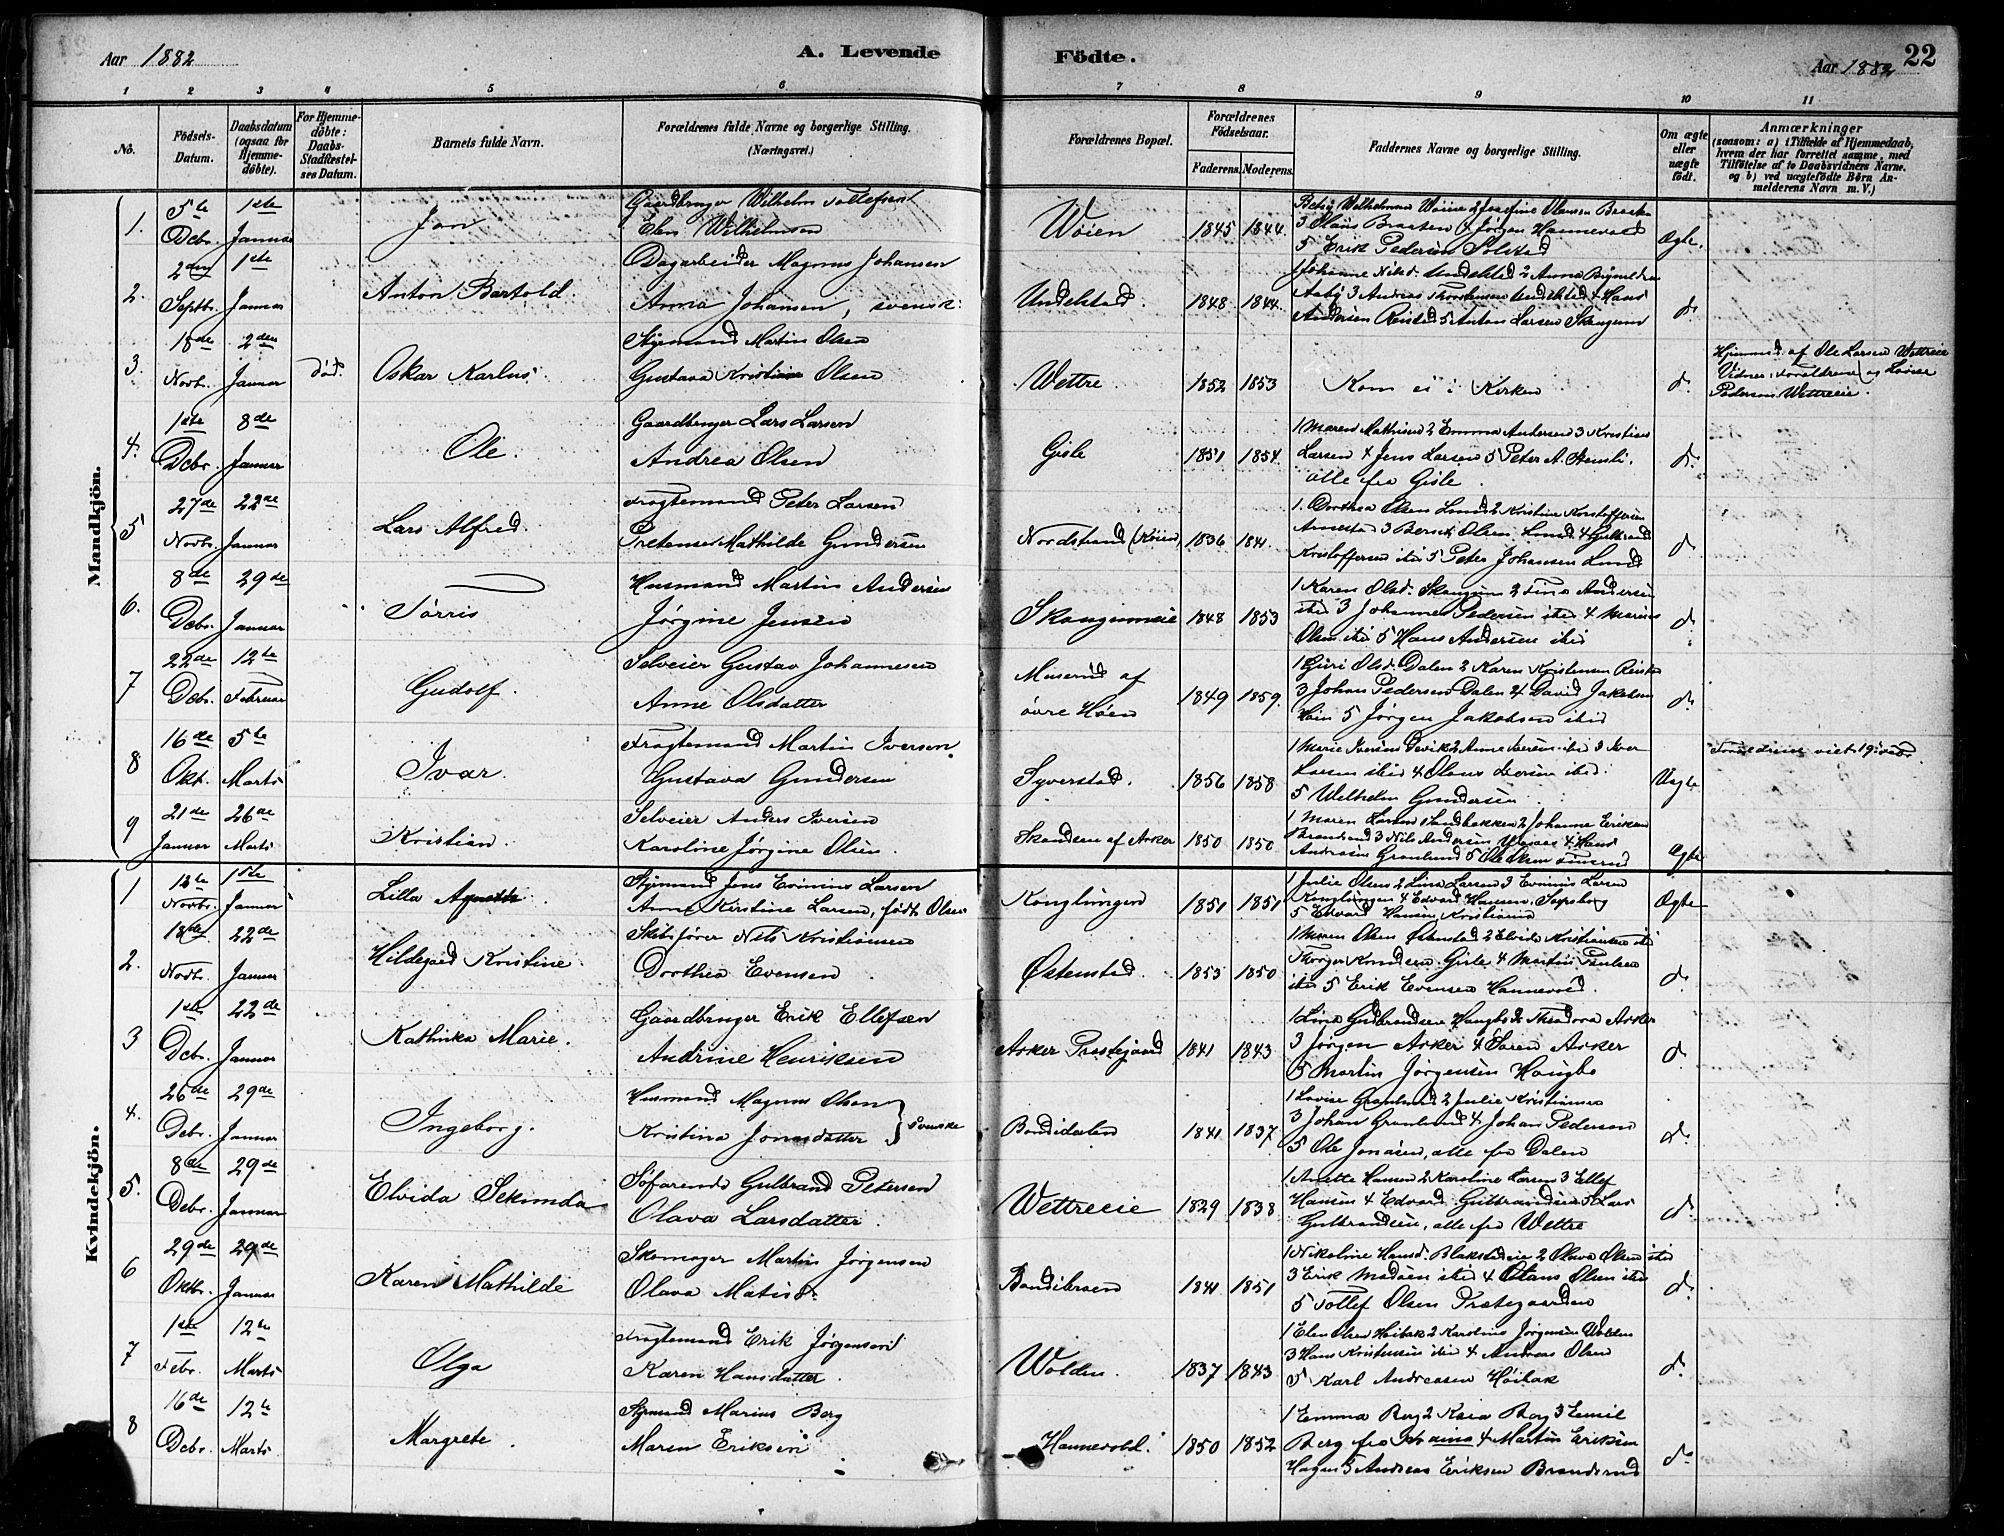 Aar 1882
A. Levende
Födte.
Aar 1882
22
1 2 3 4 5 6 7 8 9 10 11
No.
Födsels-Datum.
Daabsdatum (ogsaa for Hjemme-döbte).
For Hjemme-döbte: Daabs-Stadfæstel-ses Datum.
Barnets fulde Navn.
Forældrenes fulde Navne og borgerlige Stilling. (Næringsvei.)
Forældrenes Bopæl.
Forældrenes Födselsaar.
Faderens. Moderens.
Faddernes Navne og borgerlige Stilling.
Om ægte eller uægte födt.
Anmærkninger
(saasom: a) i Tilfælde af Hjemmedaab, hvem der har forrettet samme, med Tilföielse af to Daabsvidners Navne. og b) ved uægtefödte Börn An-melderens Navn m. V.)
Mandkjön.
1. 5te Debr. 1ste Januar Jon
Gaardbruger Wilhelm Tollefsen
Elen Wilhelmsen
Wøien 1845 1844
3 Olaus Braaten 4 Jørgen Hannevold
5 Erik Pedersen Solstad
Ægte.
2. 2den Septbr. 1ste Januar Anton Bertold
Dagarbeider Magnus Johansen
Anna Johansen, svensk.
Undelstad. 1848 1844
Aaby 3 Andreas Thorstensen Undelstad 4 Hans
Andersen Reistad 5 Anton Larsen Skaugum
do
3. 18de Novbr. 2den Januar død. Oskar Karlus
Styrmand Martin Olsen
Gustava Kristiane Olsen
Wettre 1852 1853
Kom ei i Kirken
do
Hjemmed. af Ole Larsen Wettreeie
Vidner: Forældrene og Lovise
Pedersen Wettreeie.
4. 1ste Debr. 8de Januar Ole
Gaardbruger Lars Larsen
Andrea Olsen
Gisle 1851 1854
1 Maren Mathisen 2 Emma Andersen 3 Kristian
Larsen 4 Jens Larsen 5 Peter A. Stensli,
alle fra Gisle.
do
5 27de Novbr. 22de Januar Lars Alfred.
Fragtemand Peter Larsen
Mathilde Gundersen
Nordstrand (Høien) 1836 1841
1. Dorthea Olsen Lund 2 Kristine Kristoffersen
Arnestad 3 Bernt Olsen Lund 4 Gulbrand
Kristoffersen ibid 5 Peter Johansen Lund
do
6. 8de Debr. 29de Januar Tørris
Husmand Martin Andersen
Jørgine Jensen
Skaugumeie 1848 1853
1 Karen Olsd. Skaugum 2 Tina Andersen
ibid 3 Johannes Pedersen ibid 4 Marius
Olsen ibid 5 Hans Andersen ibid
do
7 22de Debr. 12te Februar Gudolf.
Selveier Gustav Johannesen
Anne Olsdatter
Muserud af
øvre Høen 1849 1859
1 Guri Olsd. Dalen 2 Karen Kristensen
3 Johan Pedersen Dalen 4 David Jakobsen
Høen 5 Jørgen Jakobsen ibid
do
8 16de Okt. 5te Marts Ivar.
Fragtemand Martin Iversen
Gustava Gundersen
Syverstad. 1856 1858
1 Marie Iversen Gevik 2 Anne Iversen ibid 3 Iver
Larsen ibid 4 Olaus Iversen ibid.
5 Wilhelm Gundersen
Uægte
Forældrene viet
9 21de Januar 26de Marts Kristian.
Selveier Anders Iversen
Karoline Jørgine Olsen.
Skandsen af Asker 1850 1850
1 Maren Larsen Sandbakken 2 Johanne Eriksen
Brendsrud 3 Nils Andersen 4 Hans
Andersen Granlund 5 Ole Olsen
Ægte
Kvindekjön.
1 12te Novbr. 1ste Januar Lilla Agneth
Styrmand Jens Evinius Larsen
Anne Kirstine Larsen, født Olsen
Konglungen 1851 1851
1 Julie Olsen 2 Lina Larsen 3 Evinius Larsen
Konglungen 4 Edvard Hansen, Sarpsborg
5 Edvard Hansen Kristiania
Ægte
2. 18de Novbr. 22de Januar Hildegard Kristine.
Skibsfører Nils Kristiansen
Dorthea Evensen
Østenstad. 1853 1850
1 Maren Olsen Østenstad 2 Elvida Kristiansen ibid
Thorger Knudsen Gisle 4 Martin Paulsen
ibid 5 Erik Evensen Hannevold.
do
3 1ste Debr. 22de Januar Kathinka Marie.
Gaardbruger Erik Ellefsen
Andrine Henriksen
Asker Prestegaard 1841 1843
1 Lina Gulbrandsen Haugbo 2 Theodora Asker
3 Jørgen Asker 4 Søren Asker
5 Martin Jørgensen Haugbo
do
4. 26de Debr. 29de Januar Ingeborg.
Husmand Magnus Olsen
Kristina Jonasdatter } svenske
Bondidalen 1841 1837
1 Lovise Granlund 2 Julie Kristiansen
3 Johan Granlund 4 Johan Pedersen
5 Ole Jonasen, alle fra Dalen
do
5. 8de Debr. 29de Januar Elvida Sekunda
Søfarende Gulbrand Petersen
Olava Larsdatter.
Wettreeie 1829 1838
1 Anette Hansen 2 Karoline Larsen 3 Ellef
Hansen 4 Edvard Gulbrandsen 5 Lars
Gulbrandsen, alle fra Wettre
do
6 29de Oktbr. 29de Januar Karen Mathilde
Skomager Martin Jørgensen
Olava Matisd.
Bondibraaten 1841 1851
1 Nikoline Hansd. Blakstadeie 2 Olava Olsen ibid
3 Erik Madsen ibid 4 Olaus Olsen ibid
5 Tollef Olsen Præstegaarden
do
7 1ste Febr. 12te Marts Olga
Fragtemand Erik Jørgensen
Karen Hansdatter.
Wolden. 1837 1843
1 Elen Olsen Høibak 2 Karoline Jørgensen Wolden
3 Hans Kristensen ibid 4 Andreas Olsen
5 Karl Andreasen Høibak
do
8 16de Debr. 12te Marts Margrete.
Styrmand Marius Berg
Maren Eriksen
Hannevold. 1850 1852
1 Emma Berg 2 Kaia Berg 3 Emil
Berg fra 4 Martin Eriksen
Hagen 5 Andreas Eriksen Brendsrud
do